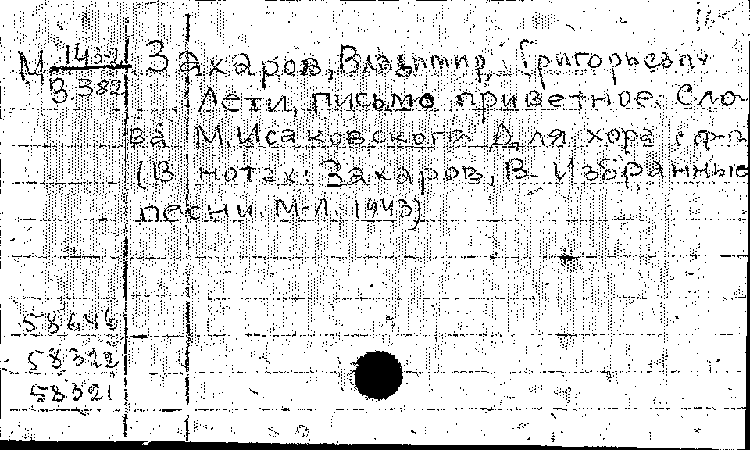 М 143-2
В 382
Захаров, Владимир Григорьевич
Лети, письмо приветное. Сло-
ва М. Исаковского Для хора с ф-п
(В нотах: Захаров, В. Избранные
песни. М-Л. 1943)
58646
58322
58321